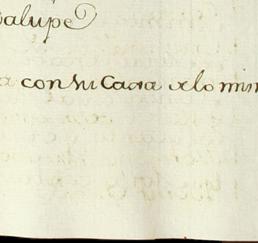 alupe
a con su Casa elo mism